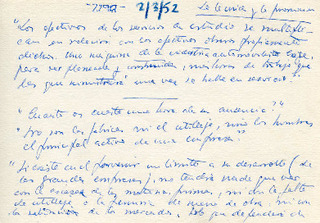 2/3/52
La técnica y la
"Los efectivos de los servicios de estudio se multiplican
en relación con los efectivos obreros propiamente
dichos. Una máquina de la industria automovilista exige,
para ser planeada y construida, más horas de trabajo que
las que suministrará una vez se halle en servicio."
"Cuanto os cuesta una hora de su audiencia?"
"no son las fábricas ni el utillaje, sino los hombres
el principal activo de una empresa"
"Si existe en el porvenir un límite a su desarrollo (de
las grandes empresas), no tendrá nada que ver
con la escasez de las materias primas, ni con la falta
de utillaje, o la penuria de mano de obra, ni con
la saturación de los mercados. Sino que dependerá de